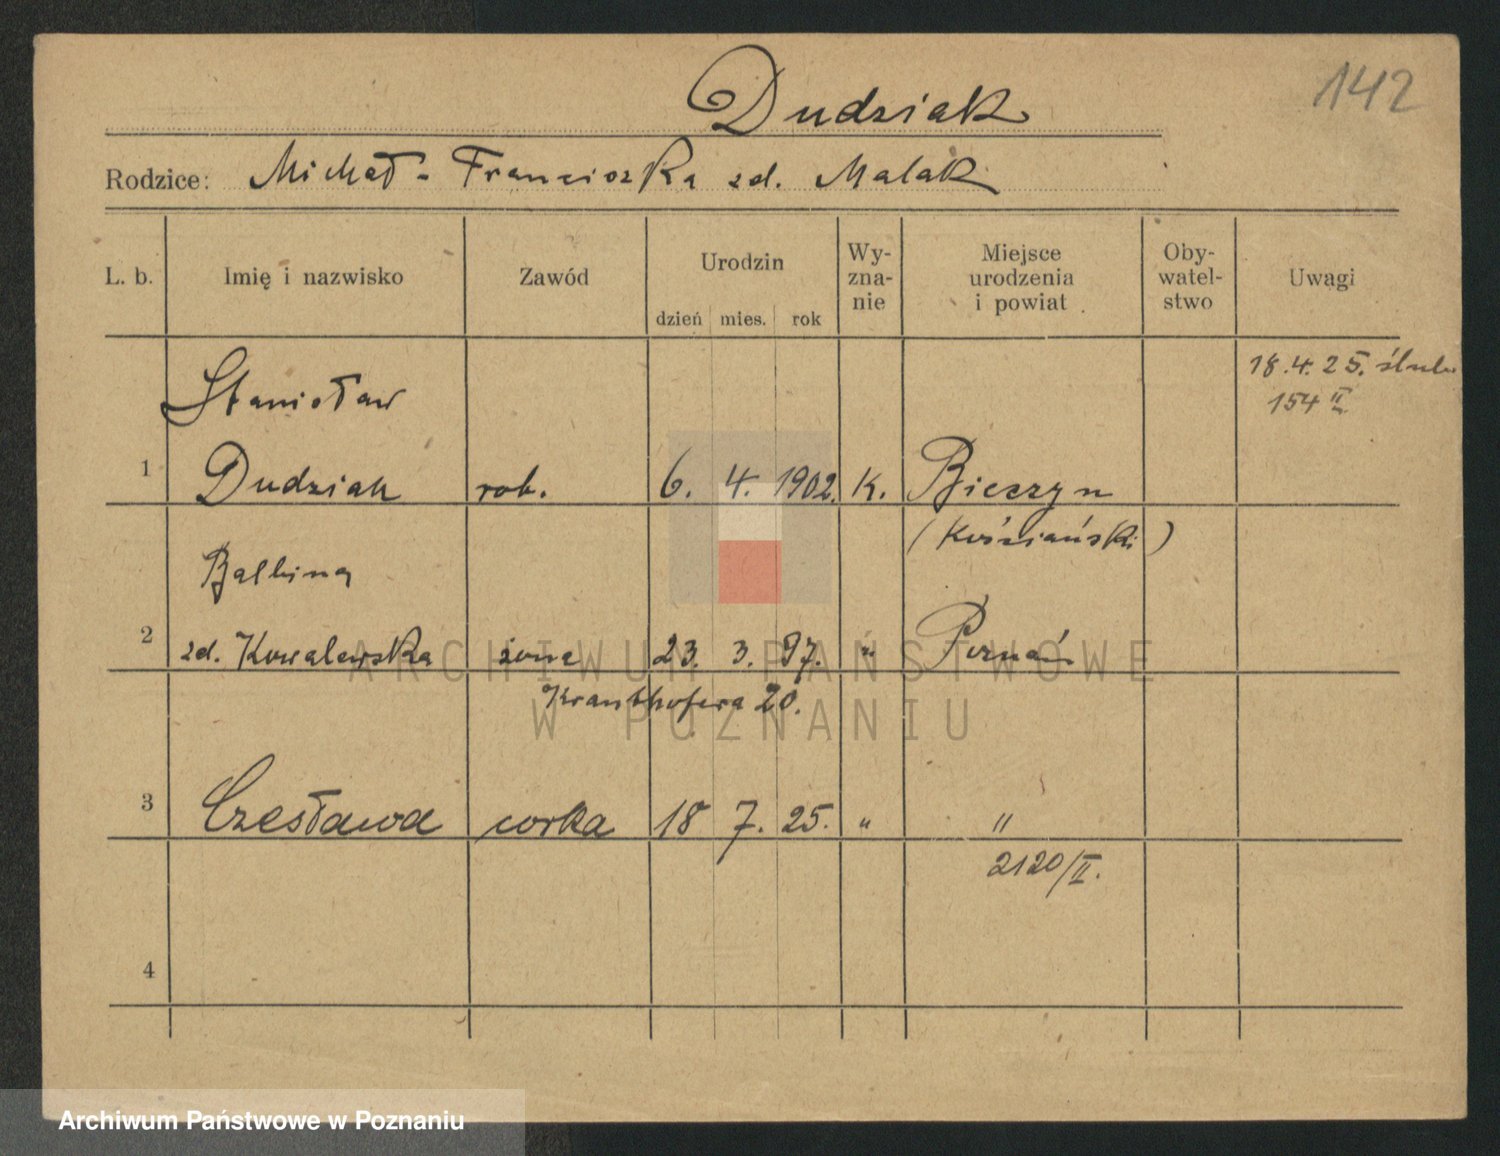 142
Dudziak
Rodzice: Michał - Franciszka zd. Malak
L. b.
Imię i nazwisko
Zawód
Urodzin
dzień mies. rok
Wy-
zna-
nie
Miejsce
urodzenia
i powiat
Oby-
watel-
stwo
Uwagi
18.4.25. ślub
154 II
Stanisław
1 Dudziak rob. 6. 4. 1902. K. Bieczyn
(Kościański)
Balbina
2 zd. Kowalewska żona 23. 3. 97. " Poznań
Kranthofera 20.
3 Czesława corka 18 7. 25. " "
2120/II.
4
ARCHIWUM PAŃSTWOWE
W POZNANIU
Archiwum Państwowe w Poznaniu